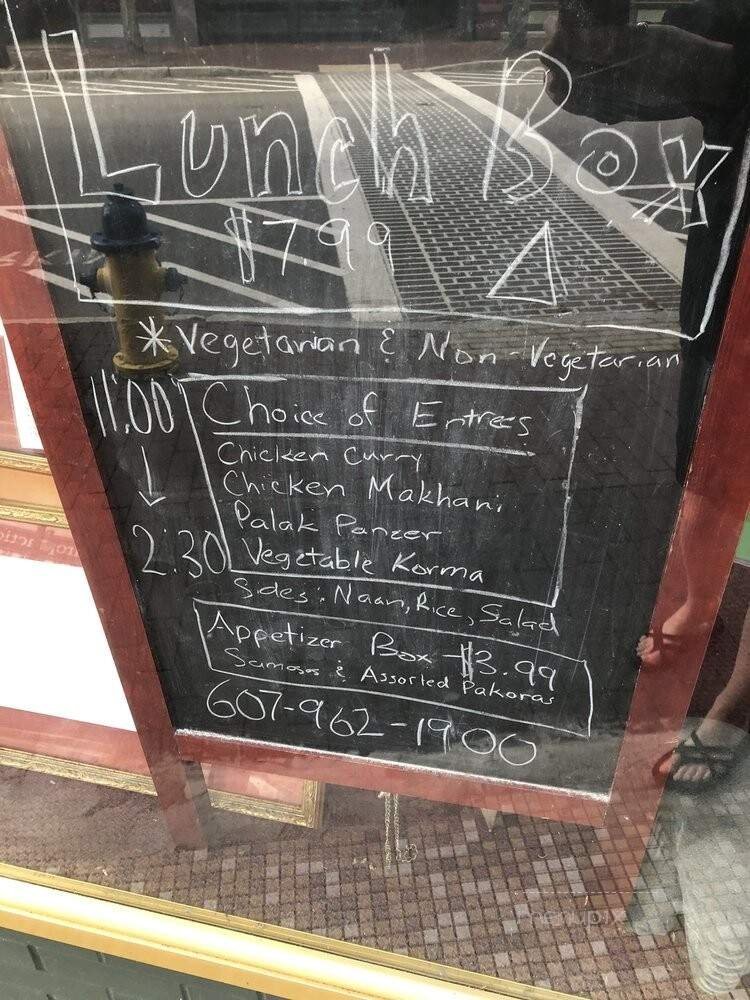 Lunch Box
$7.99
*Vegetarian & Non-Vegetarian
11:00
↓
2:30
Choice of Entrees
Chicken Curry
Chicken Makhani
Palak Paneer
Vegetable Korma
Sides: Naan, Rice, Salad
Appetizer Box - $3.99
Samosa & Assorted Pakoras
607-962-1900
menupix